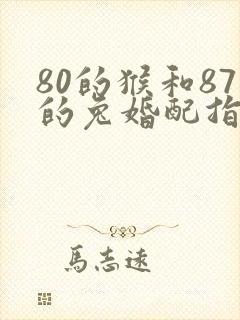 80的猴和87
的兔婚配指
馬志遠